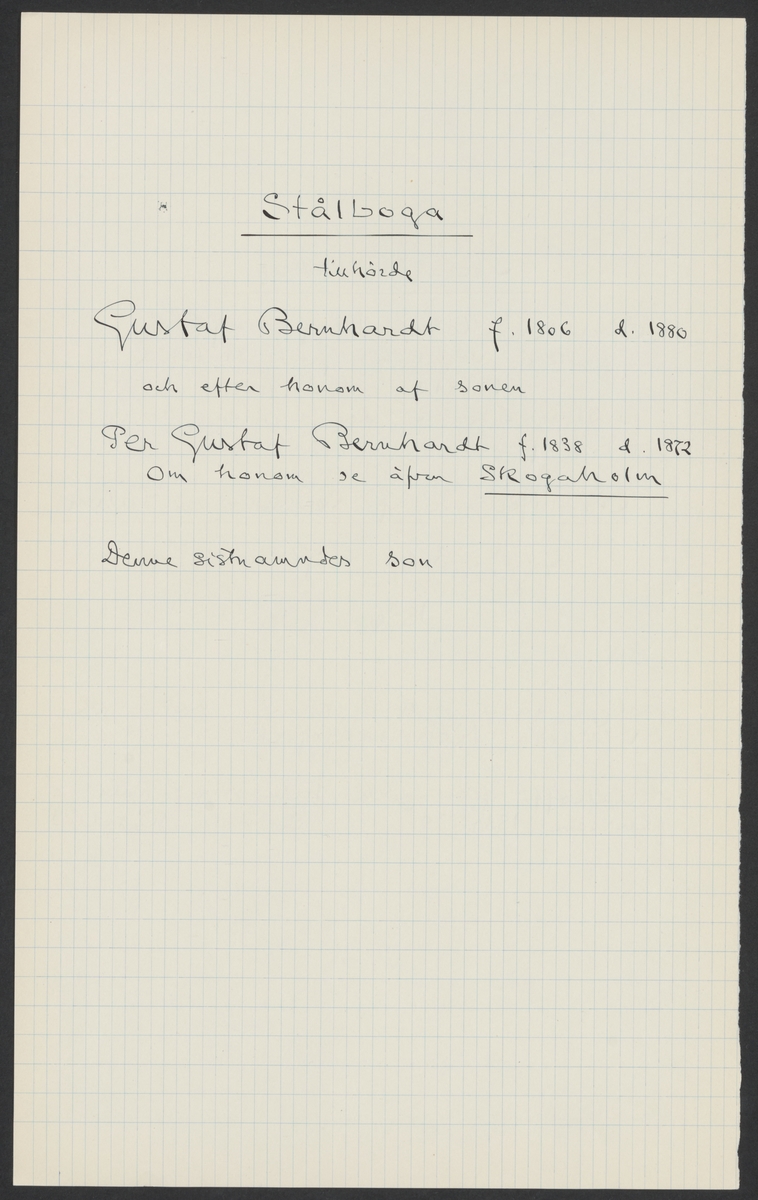 Stålboga
tillhörde
Gustaf Bernhardt f. 1806 d. 1880
och efter honom af sonen
Per Gustaf Bernhardt f. 1838 d. 1872
Om honom se äfven Skogaholm
Denne sistnämndes son